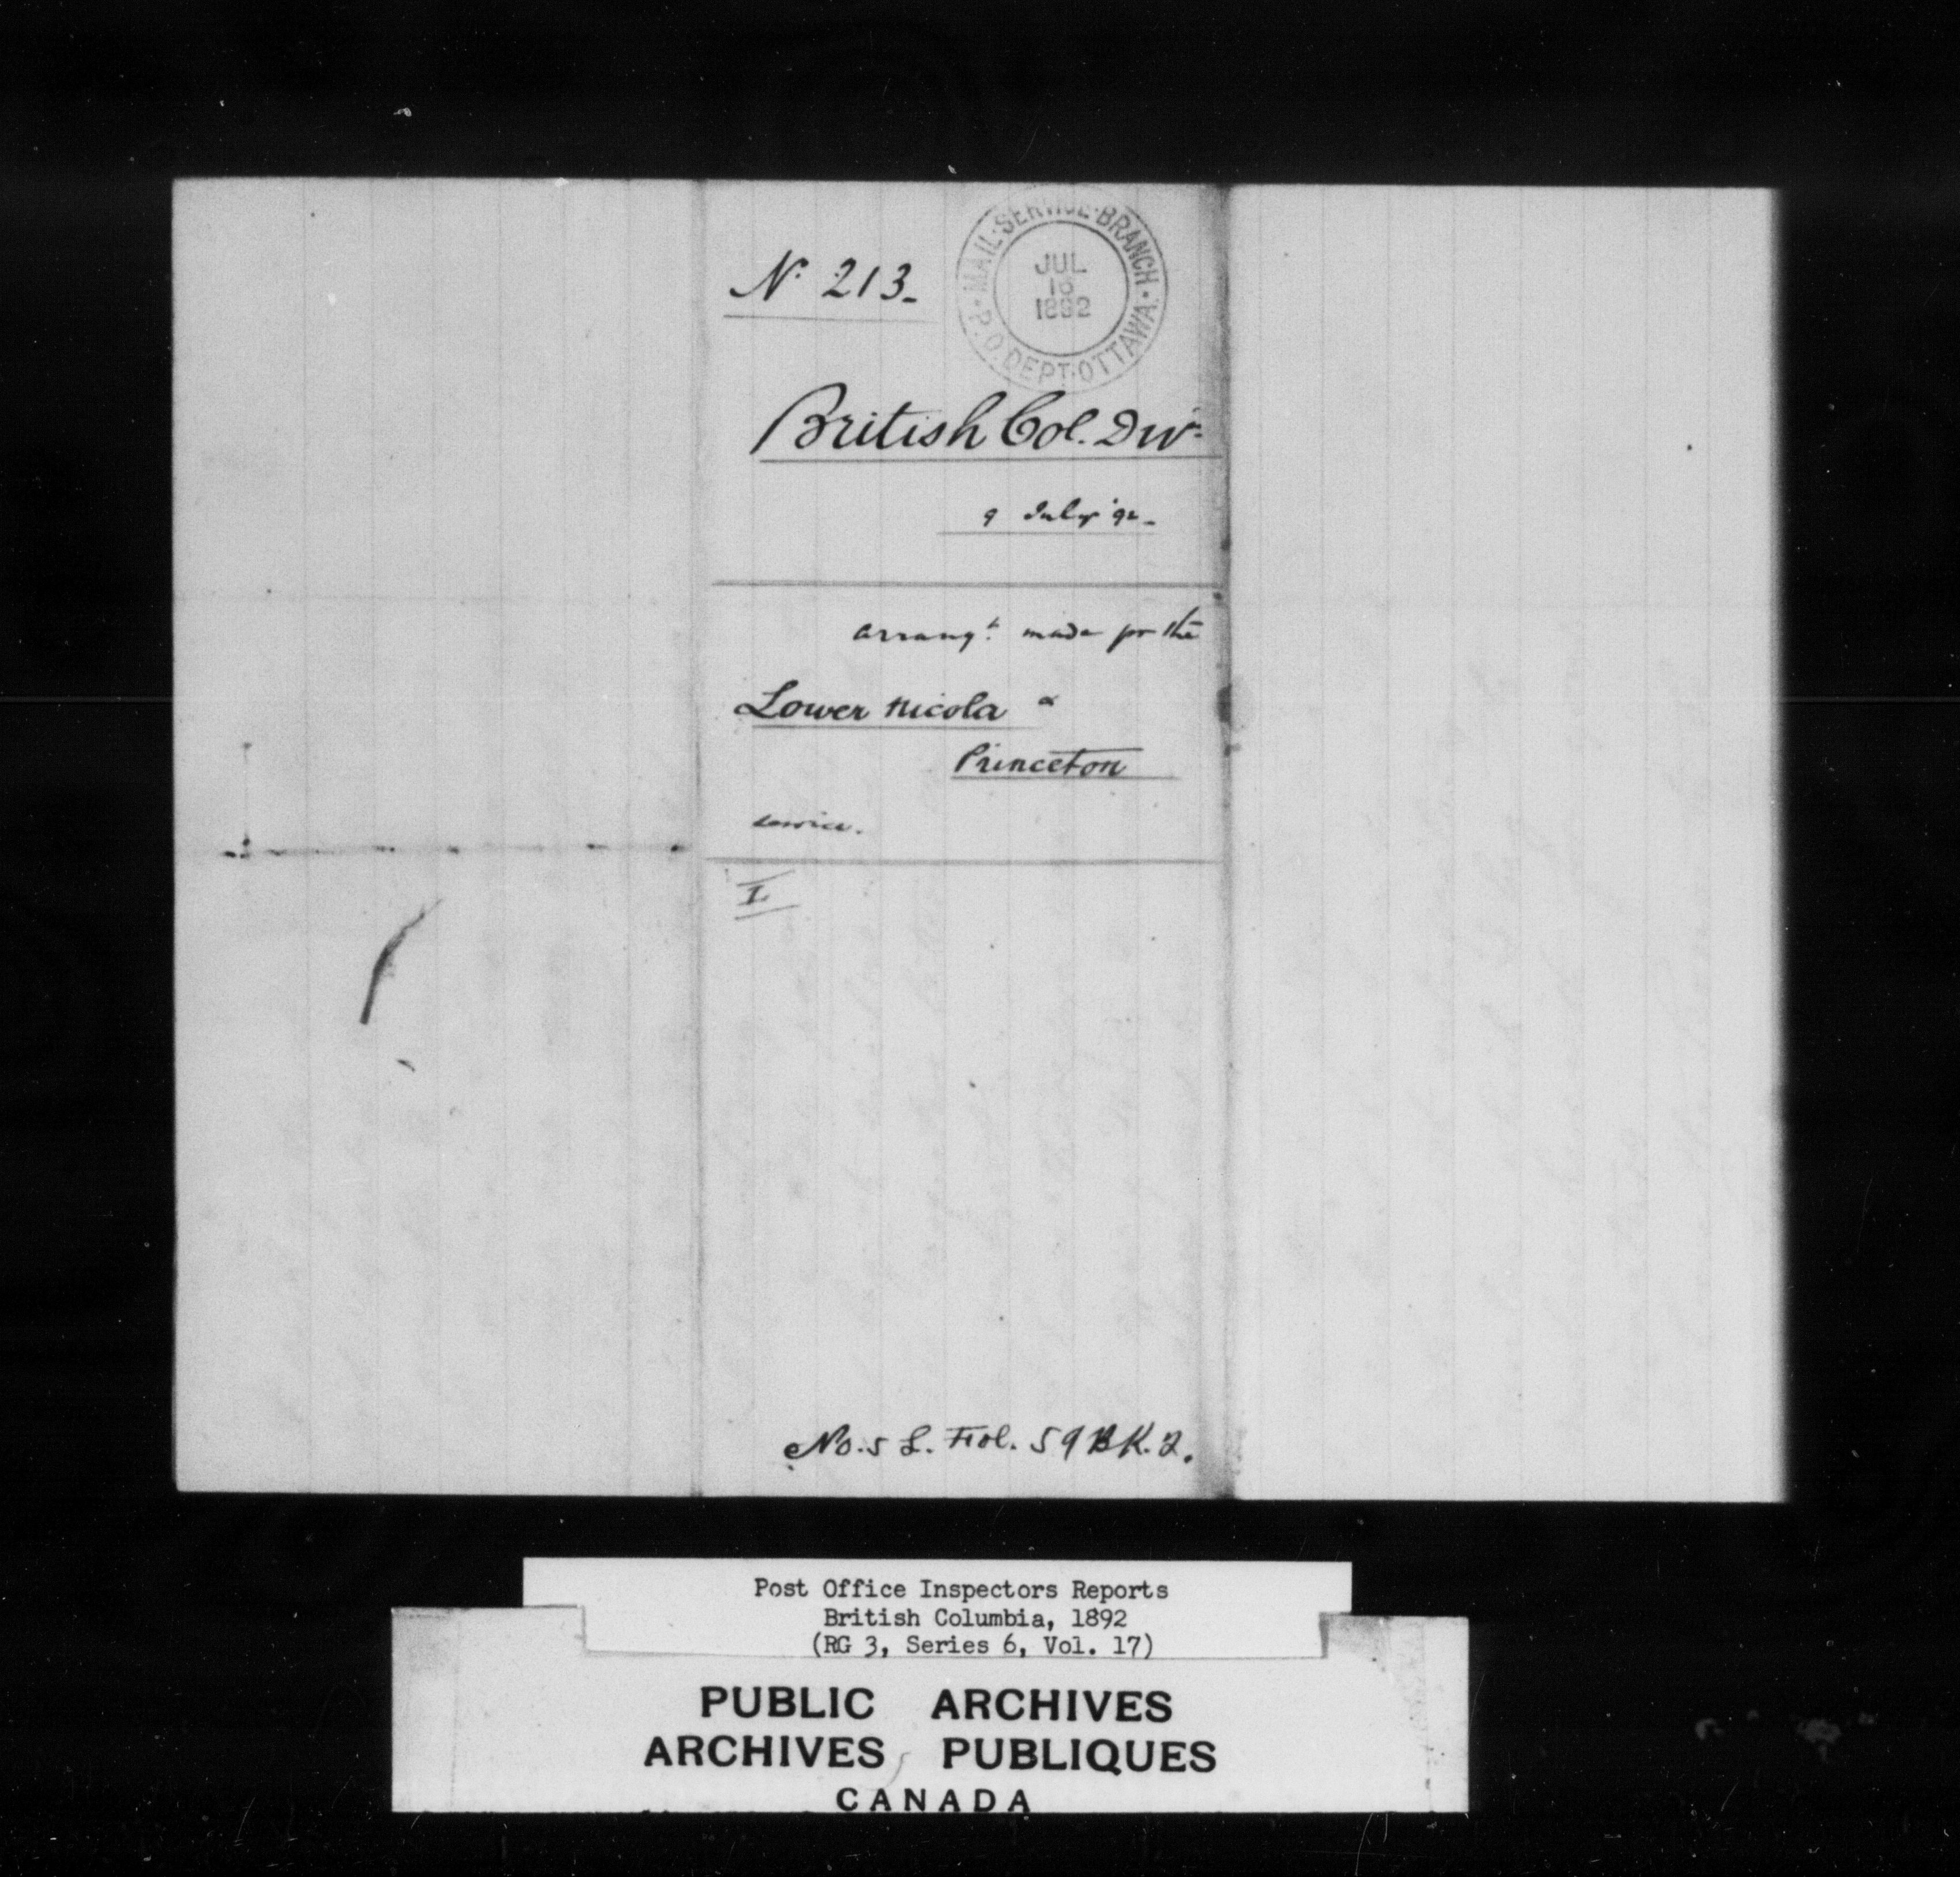 N. 213.
MAIL·SERVICE·BRANCH·
P.O.DEPT·OTTAWA·
JUL
16
1892
British Col. Divn
9 July '92.
arrangt. made for the
Lower Nicola &
Princeton
service.
I
No. 5 L. Fol. 59 BK. 2.
Post Office Inspectors Reports
British Columbia, 1892
(RG 3, Series 6, Vol. 17)
PUBLIC ARCHIVES
ARCHIVES PUBLIQUES
CANADA